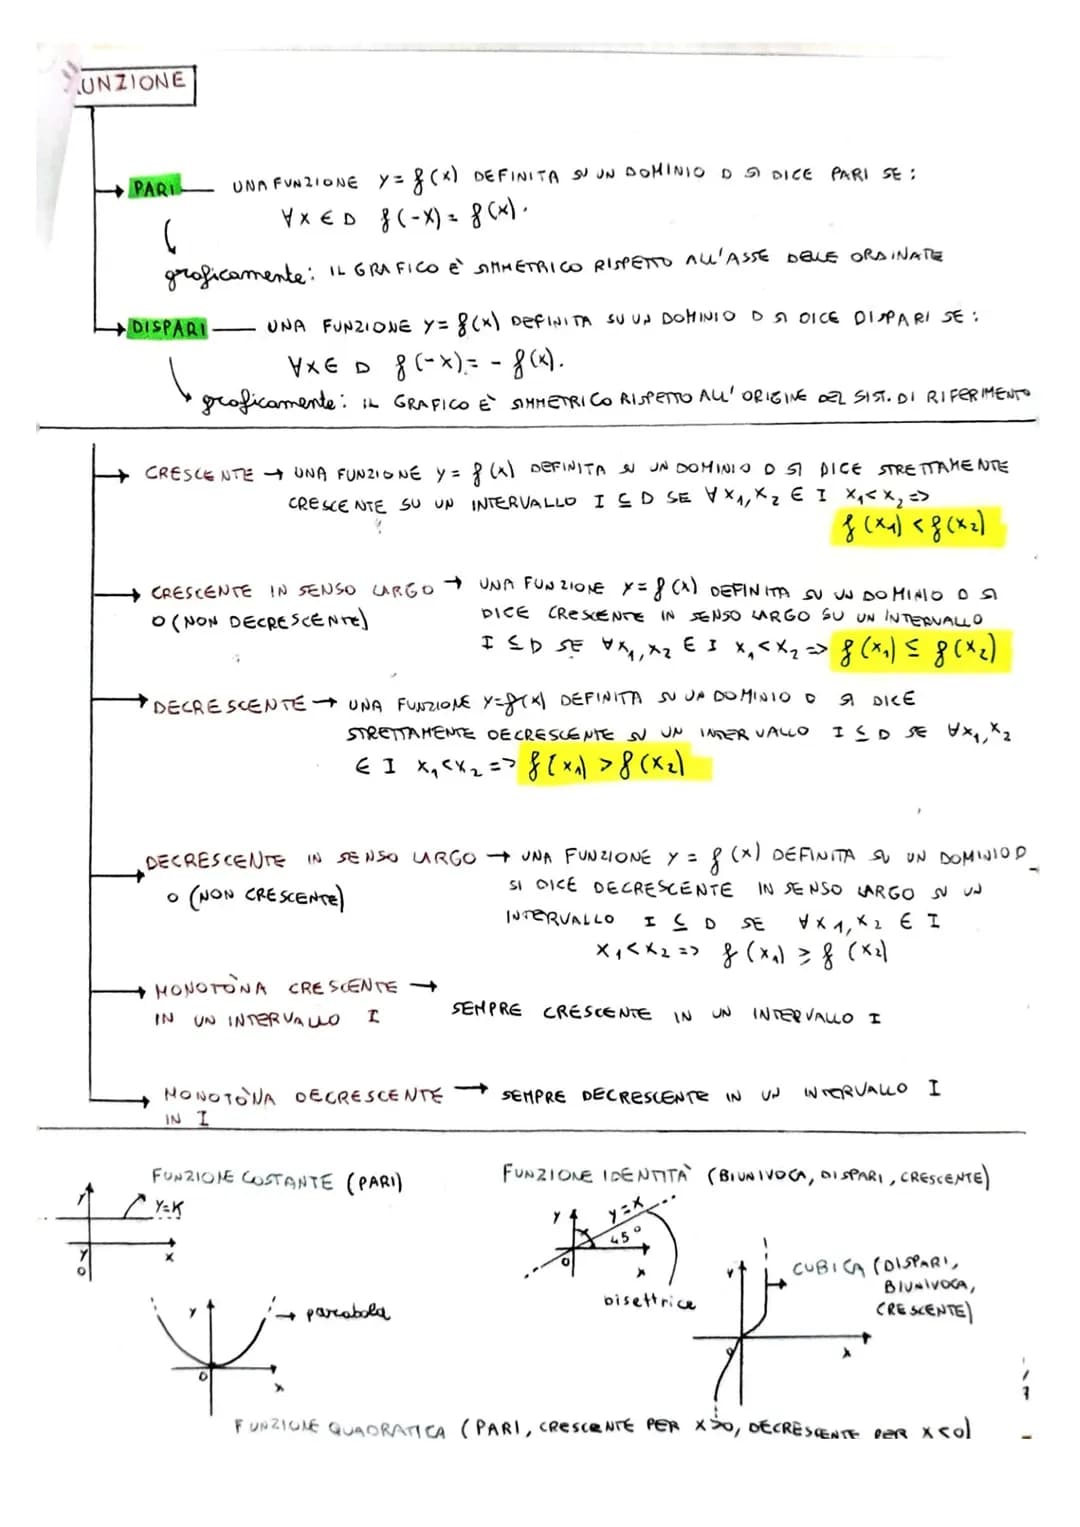 UNZIONE
PARI — UNA FUNZIONE y = f(x) DEFINITA SU UN DOMINIO D SI DICE PARI SE:
∀x ∈ D f(-x) = f(x).
graficamente: IL GRAFICO È SIMMETRICO RISPETTO ALL'ASSE DELLE ORDINATE
DISPARI — UNA FUNZIONE y = f(x) DEFINITA SU UN DOMINIO D SI DICE DISPARI SE:
∀x ∈ D f(-x) = - f(x).
graficamente: IL GRAFICO È SIMMETRICO RISPETTO ALL'ORIGINE DEL SIST. DI RIFERIMENTO
CRESCENTE → UNA FUNZIONE y = f(x) DEFINITA SU UN DOMINIO D SI DICE STRETTAMENTE
CRESCENTE SU UN INTERVALLO I ⊆ D SE ∀x₁,x₂ ∈ I x₁<x₂ =>
f(x₁) < f(x₂)
CRESCENTE IN SENSO LARGO → UNA FUNZIONE y = f(x) DEFINITA SU UN DOMINIO D SI
O (NON DECRESCENTE) DICE CRESCENTE IN SENSO LARGO SU UN INTERVALLO
I ⊆ D SE ∀x₁,x₂ ∈ I x₁<x₂ => f(x₁) ≤ f(x₂)
DECRESCENTE → UNA FUNZIONE y=f(x) DEFINITA SU UN DOMINIO D SI DICE
STRETTAMENTE DECRESCENTE SU UN INTERVALLO I ⊆ D SE ∀x₁,x₂
∈ I x₁<x₂ => f(x₁) > f(x₂)
DECRESCENTE IN SENSO LARGO → UNA FUNZIONE y = f(x) DEFINITA SU UN DOMINIO D
O (NON CRESCENTE) SI DICE DECRESCENTE IN SENSO LARGO SU UN
INTERVALLO I ⊆ D SE ∀x₁,x₂ ∈ I
x₁<x₂ => f(x₁) ≥ f(x₂)
MONOTÒNA CRESCENTE →
IN UN INTERVALLO I SEMPRE CRESCENTE IN UN INTERVALLO I
MONOTÒNA DECRESCENTE → SEMPRE DECRESCENTE IN UN INTERVALLO I
IN I
FUNZIONE COSTANTE (PARI)
y
y=K
x
y
O
FUNZIONE IDENTITÀ (BIUNIVOCA, DISPARI, CRESCENTE)
y
y=x
45°
O
x
bisettrice
y
→ parabola
O
x
y
CUBICA (DISPARI,
BIUNIVOCA,
CRESCENTE)
O
x
FUNZIONE QUADRATICA (PARI, CRESCENTE PER x>0, DECRESCENTE PER x<0)